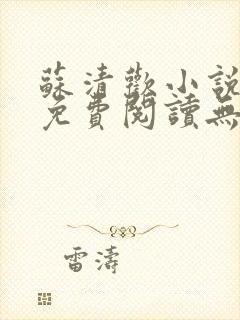 蘇清歡小說
免費閱讀無
雷濤